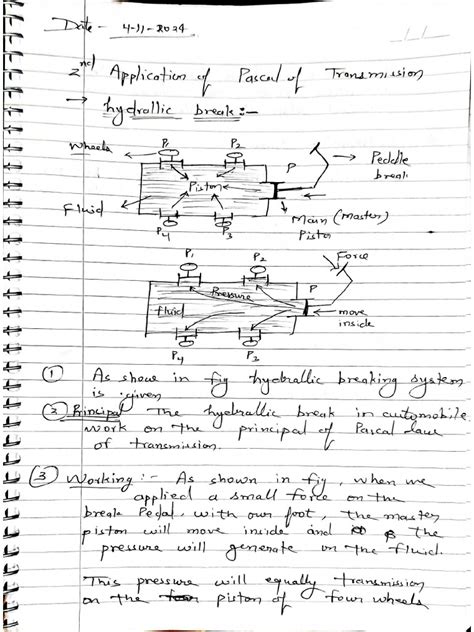 Date - 4-11-2024
2nd Application of Pascal of Transmission
→ hydrollic break:-
Wheels
P1
P2
P
→ Peddle break
Piston
Fluid
Main (Master) Piston
P4
P3
P1
P2
Force
Pressure
P
fluid
move inside
P4
P3
① As showe in fig hyebrallic breaking system
is given
② Principal The hyebrallic break in automobile
work on the principal of Pascal law
of transmission.
③ Working :- As shown in fig, when we
applied a small force on the
break Pedal, with our foot, the master
piston will move inside and the
pressure will generate on the fluid.
This pressure will equally transmission
on the piston of four wheels